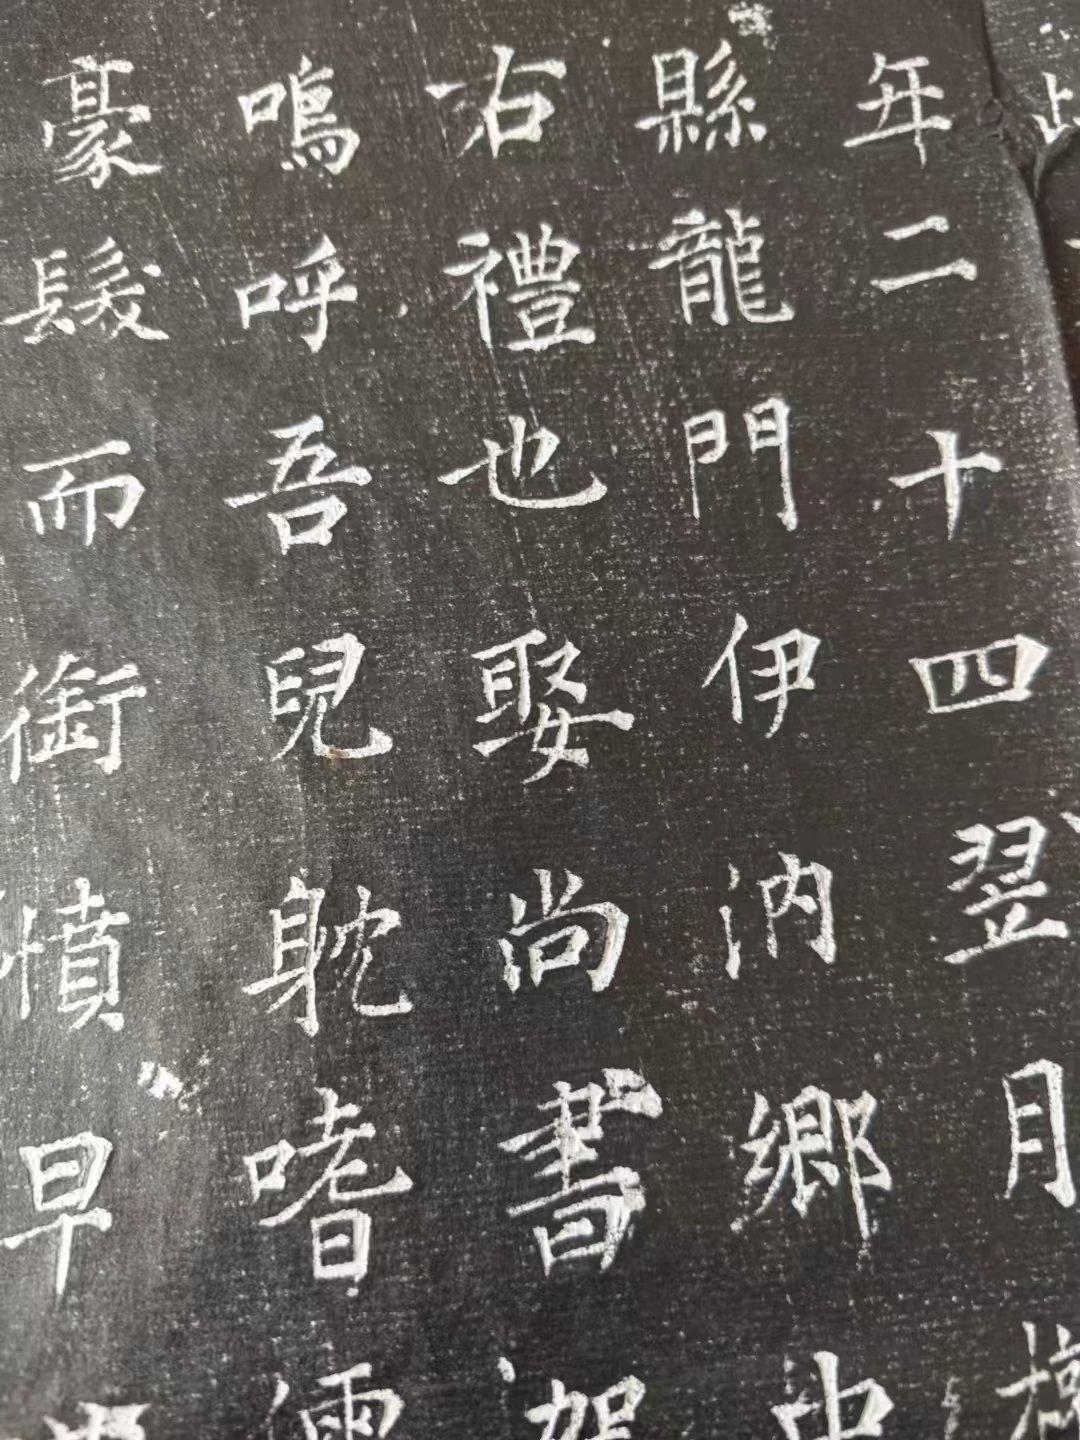 年二十四翌月
縣龍門伊汭鄉中
右禮也娶尚書
嗚呼吾兒躭嗜儒
豪髮而銜憤早